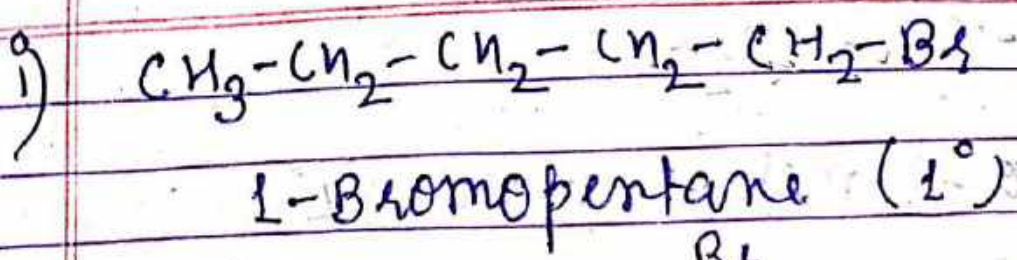 i) CH₃-CH₂-CH₂-CH₂-CH₂-Br
1-Bromopentane (1°)
Br